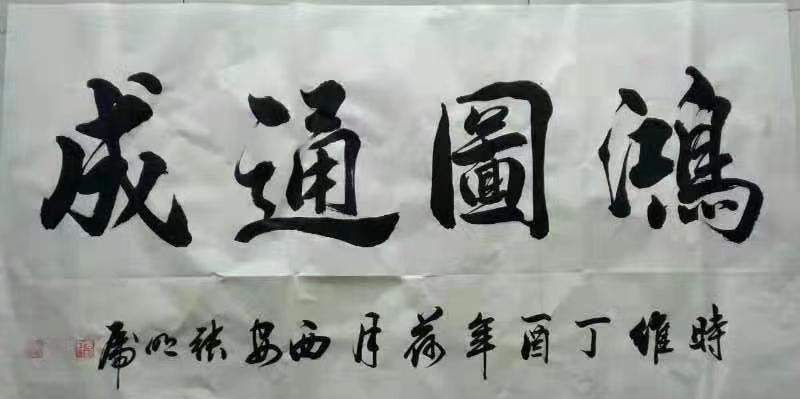 鴻圖通成
時維丁酉年荷月西安張明虎